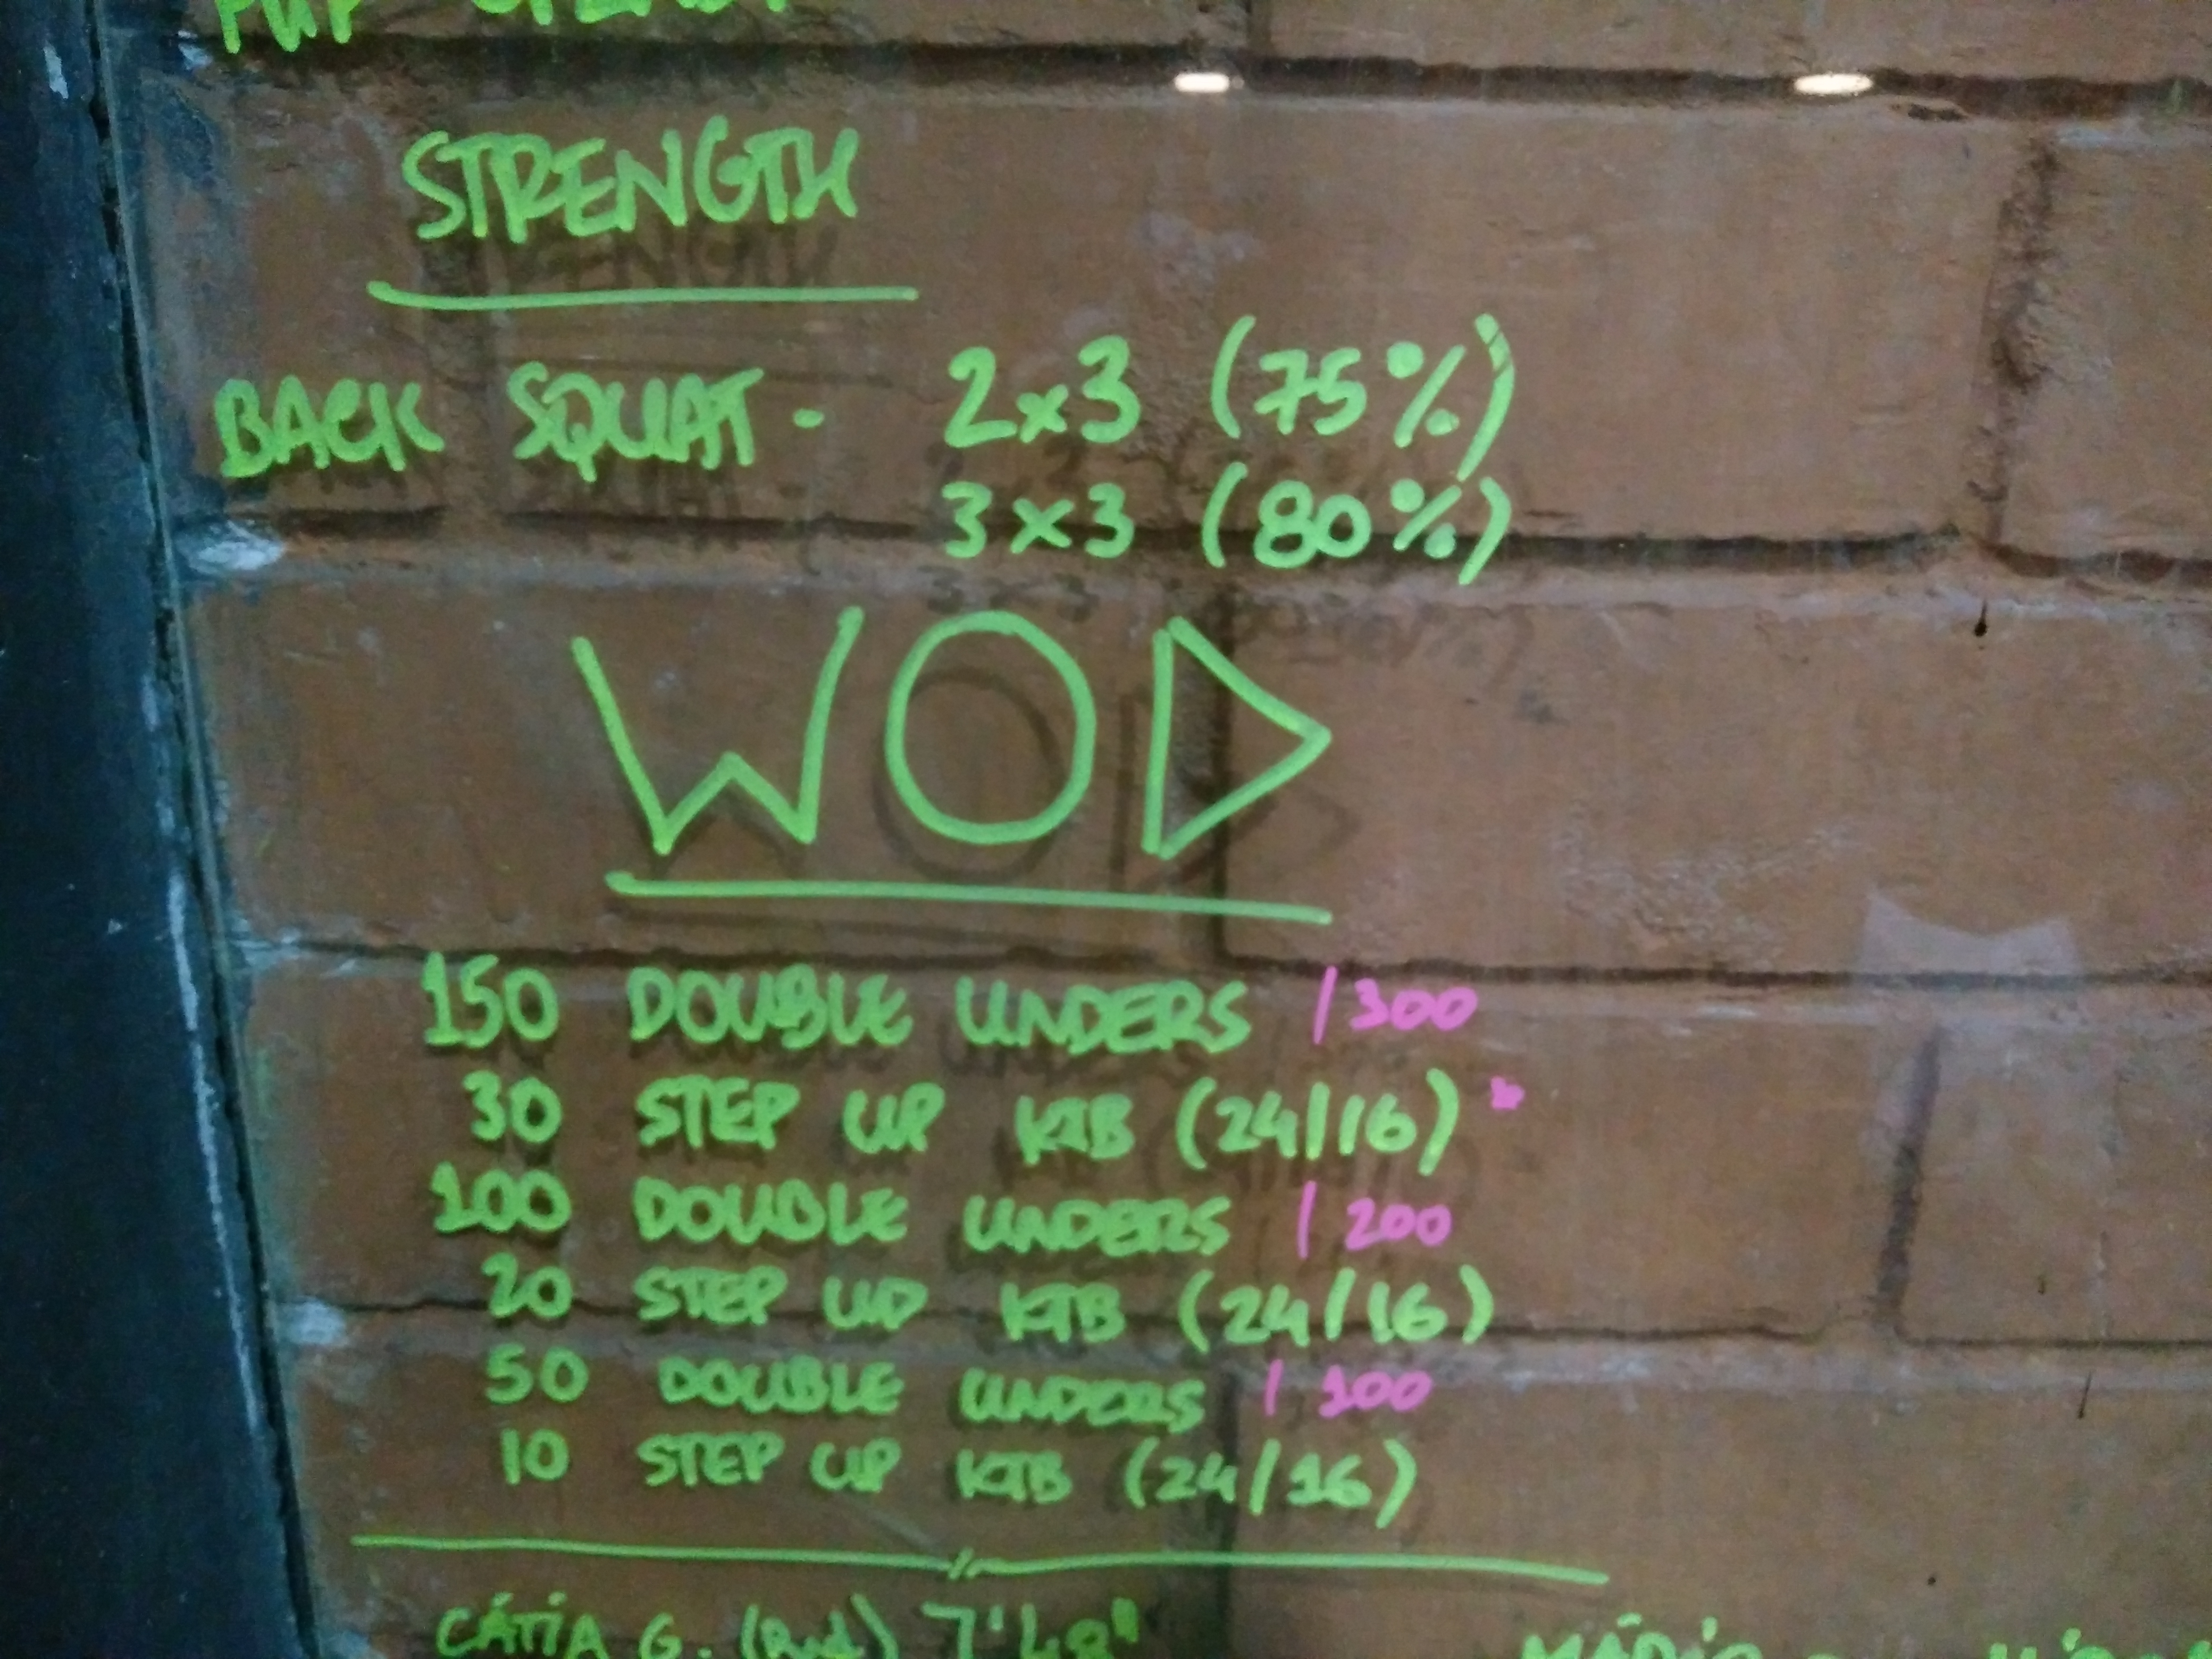 STRENGTH
BACK SQUAT - 2x3 (75%)
3x3 (80%)
WOD
150 DOUBLE UNDERS / 300
30 STEP UP KTB (24/16)
100 DOUBLE UNDERS / 200
20 STEP UP KTB (24/16)
50 DOUBLE UNDERS / 100
10 STEP UP KTB (24/16)
CÁTIA G. (Rxd) 7'48"